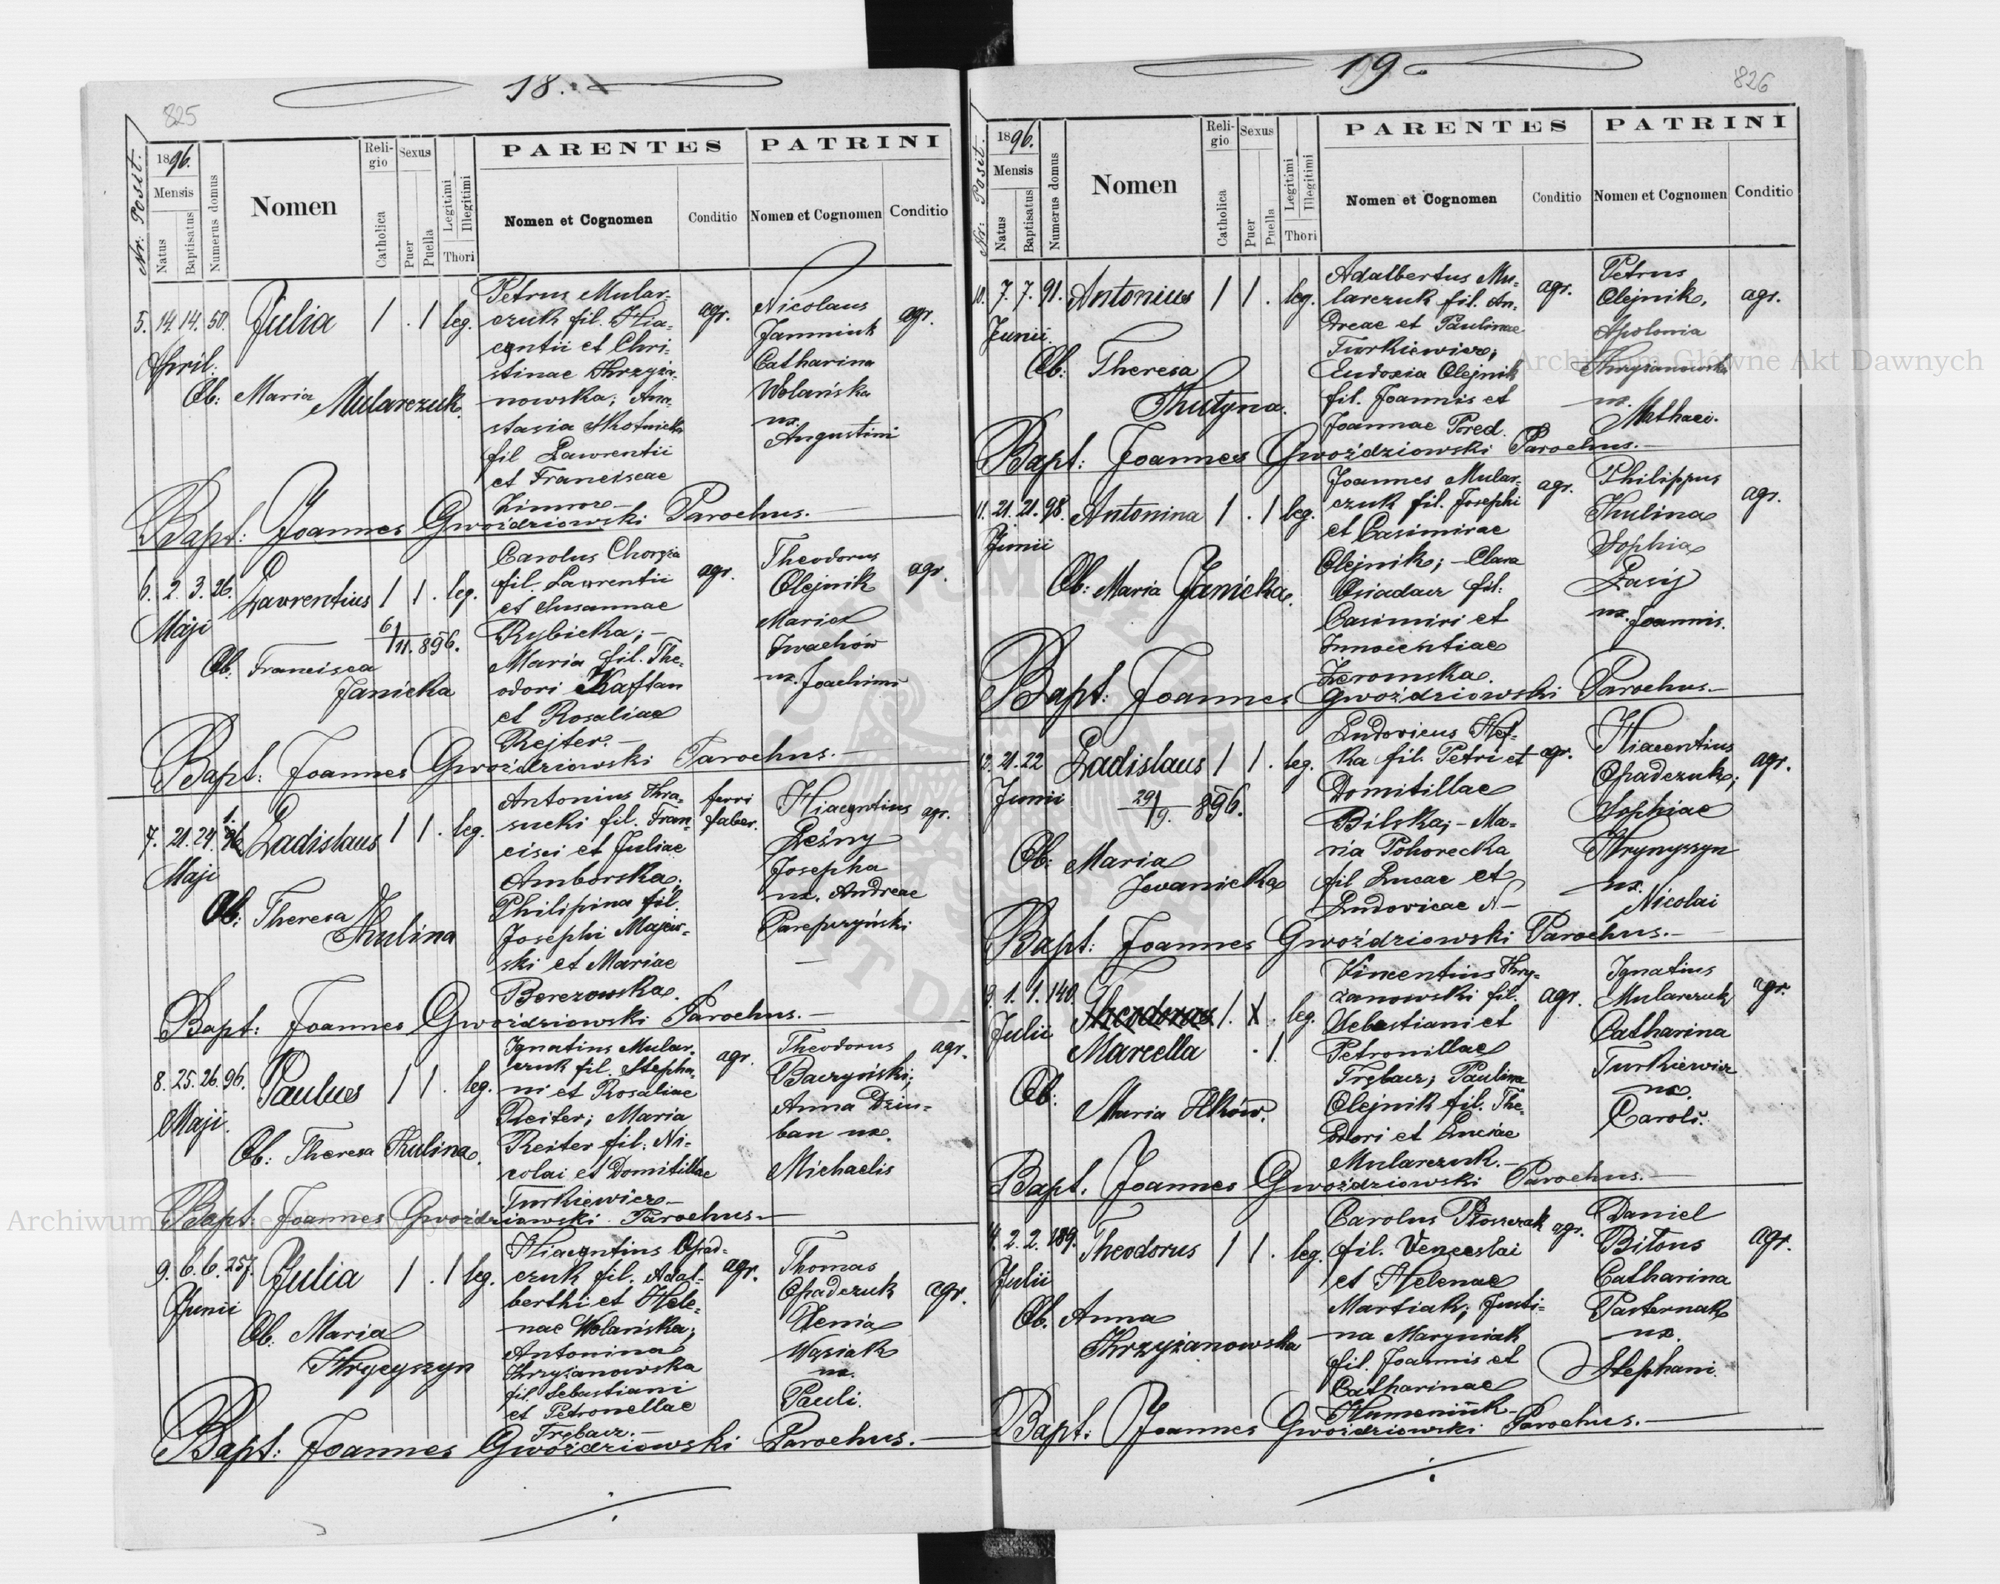 18.
825
Nr. Posit.
1896.
Mensis
Natus
Baptisatus
Numerus domus
Nomen
Religio
Catholica
Sexus
Puer
Puella
Legitimi
Illegitimi
Thori
PARENTES
Nomen et Cognomen
Conditio
PATRINI
Nomen et Cognomen
Conditio
5. 14. 14. 50. Julia 1 . 1 leg.
April.
Ob: Maria Mularczuk.
Petrus Mular-
czuk fil. Hia-
cyntii et Chri-
stinae Krzyża-
nowska; Ana-
stasia Skotnicka
fil Lawrentii
et Franciscae
Zimroz
agr.
Nicolaus
Jamniuk
Catharina
Wolańska
ux.
Augustini
agr.
Bapt: Joannes Gwoździowski Parochus.
6. 2. 3. 26. Lavrentius 1 1 . leg.
Maji
6/11. 896.
Ob. Francisca
Janicka
Carolus Chorzja
fil. Lawrentii
et Susannae
Rybicka; –
Maria fil. The-
odori Kaftan
et Rosaliae
Rejter. –
agr.
Theodorus
Olejnik
Maria
Iwachów
ux. Joachimi
agr.
Bapt: Joannes Gwoździowski Parochus. –
7. 21. 24. Ladislaus 1 1 . leg.
Maji
Ob: Theresa
Kulina
Antonius Kra-
sucki fil. Fran-
cisci et Juliae
Amborska.
Philipina fil.
Josephi Majew-
ski et Mariae
Berezowska.
ferri
faber.
Hiacyntius
Leśny
Josepha
ux. Andreae
Parepczyński
agr.
Bapt: Joannes Gwoździowski Parochus. –
8. 25. 26. 96. Paulus 1 1 . leg.
Maji.
Ob: Theresa Kulina.
Ignatius Mular-
czuk fil. Stepha-
ni et Rosaliae
Reiter; Maria
Reiter fil: Ni-
colai et Domitillae
Turkiewicz –
agr.
Theodorus
Baczyński;
Anna Dziu-
ban ux.
Michaelis
agr.
Bapt: Joannes Gwoździowski Parochus –
9. 6. 6. 257. Julia 1 . 1 leg.
Junii
Ob. Maria
Hrycyszyn
Hiacyntius Opad-
czuk fil. Adal-
berthi et Hele-
nae Wolańska;
Antonina
Krzyżanowska
fil. Sebastiani
et Petronellae
Trębacz. –
agr.
Thomas
Opadczuk
Xenia
Wasiak
ux.
Pauli.
agr.
Bapt: Joannes Gwoździowski Parochus. –
19.
826
Nr. Posit.
1896.
Mensis
Natus
Baptisatus
Numerus domus
Nomen
Religio
Catholica
Sexus
Puer
Puella
Legitimi
Illegitimi
Thori
PARENTES
Nomen et Cognomen
Conditio
PATRINI
Nomen et Cognomen
Conditio
10. 7. 7. 91. Antonius 1 1 . leg.
Junii.
Ob: Theresa
Kutyna.
Adalbertus Mu-
larczuk fil. An-
dreae et Paulinae
Turkiewicz;
Eudoxia Olejnik
fil. Joannis et
Joannae Pored.
agr.
Petrus
Olejnik,
Apolonia
Krzyżanowska
ux.
Mathaei.
agr.
Bapt: Joannes Gwoździowski Parochus. –
11. 21. 21. 98. Antonina 1 . 1 leg.
Junii
Ob: Maria Janicka.
Joannes Mular-
czuk fil. Josephi
et Casimirae
Olejnik; – Clara
Osiadacz fil:
Casimiri et
Innocentiae
Żeromska.
agr.
Philippus
Kulina
Sophia
Łasij
ux. Joannis.
agr.
Bapt: Joannes Gwoździowski Parochus. –
12. 21. 22 Ladislaus 1 1 . leg.
Junii
29/9. 896.
Ob: Maria
Iwanicka
Ludovicus Hef-
ka fil. Petri et
Domitillae
Bilska; – Ma-
ria Pohorecka
fil Lucae et
Ludovicae N –
agr.
Hiacentius
Opadczuk;
Sophiae
Hrynyszyn
ux.
Nicolai
agr.
Bapt: Joannes Gwoździowski Parochus. –
1. 1. 140. Theodorus 1. X . leg.
Julii Marcella . 1.
Ob:
Maria Ilków.
Vincentius Krzy-
żanowski fil.
Sebastiani et
Petronillae
Trębacz; Paulina
Olejnik fil. The-
odori et Luciae
Mularczuk. –
agr.
Ignatius
Mularczuk
Catharina
Turkiewicz
ux.
Caroli.
agr.
Bapt. Joannes Gwoździowski Parochus. –
2. 2. 189. Theodorus 1 1 . leg.
Julii
Ob. Anna
Krzyżanowska
Carolus Płoszczak
fil. Venceslai
et Helenae
Martiak; Justi-
na Maryniak
fil. Joannis et
Catharinae
Humeniuk –
agr.
Daniel
Bitous
Catharina
Pasternak
ux.
Stephani.
agr.
Bapt: Joannes Gwoździowski Parochus. –
Archiwum Główne Akt Dawnych